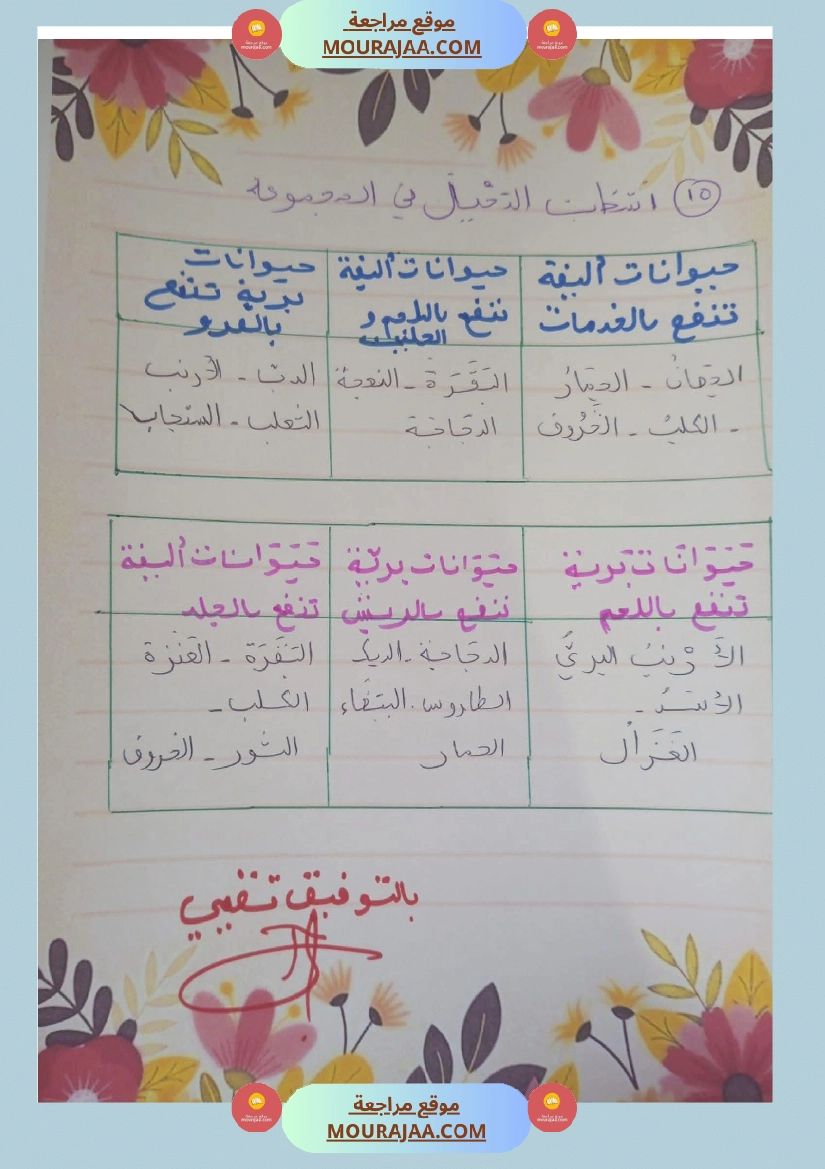 موقع مراجعة
MOURAJAA.COM
١٥ أشطب الدّخيل في المجموعة
حيوانات أليفة تنفع بالخدمات
حيوانات أليفة تنفع باللحم و الحليب
حيوانات برية تنفع بالفرو
الحصان - الحمار
- الكلب - الخروف
البَقَرَة - النعجة
الدجاجة
الدب - الأرنب
الثعلب - السنجاب
حَيَوَانَات بَرية تنفع باللحم
حَيَوانات بريّة تنفع بالريش
حَيَوَانات أليفة تنفع بالجلد
الأَرْنبُ البريّ
الأسدُ -
الغَزَال
الدجاجة - الديك
الطاووس . الببغاء
الحمار
البَقَرَة - العنزة
الكلب -
الثور - الخروف
بالتوفيق
موقع مراجعة
MOURAJAA.COM